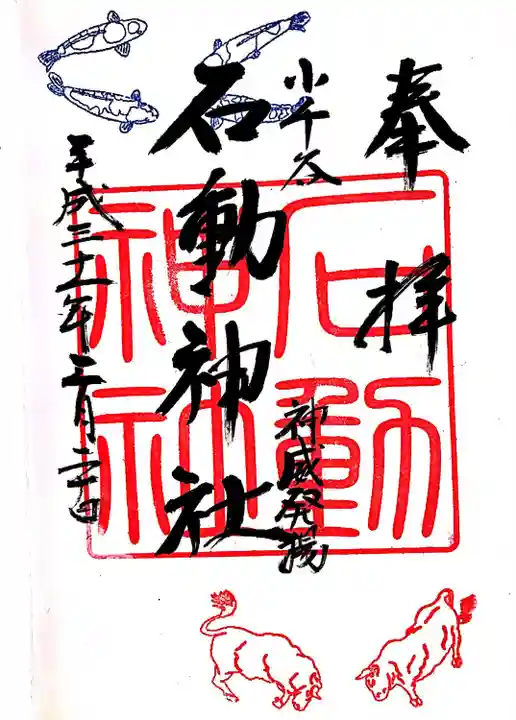 奉拝
小千谷
神威発揚
石動神社
石動神社
平成三十一年三月二十日